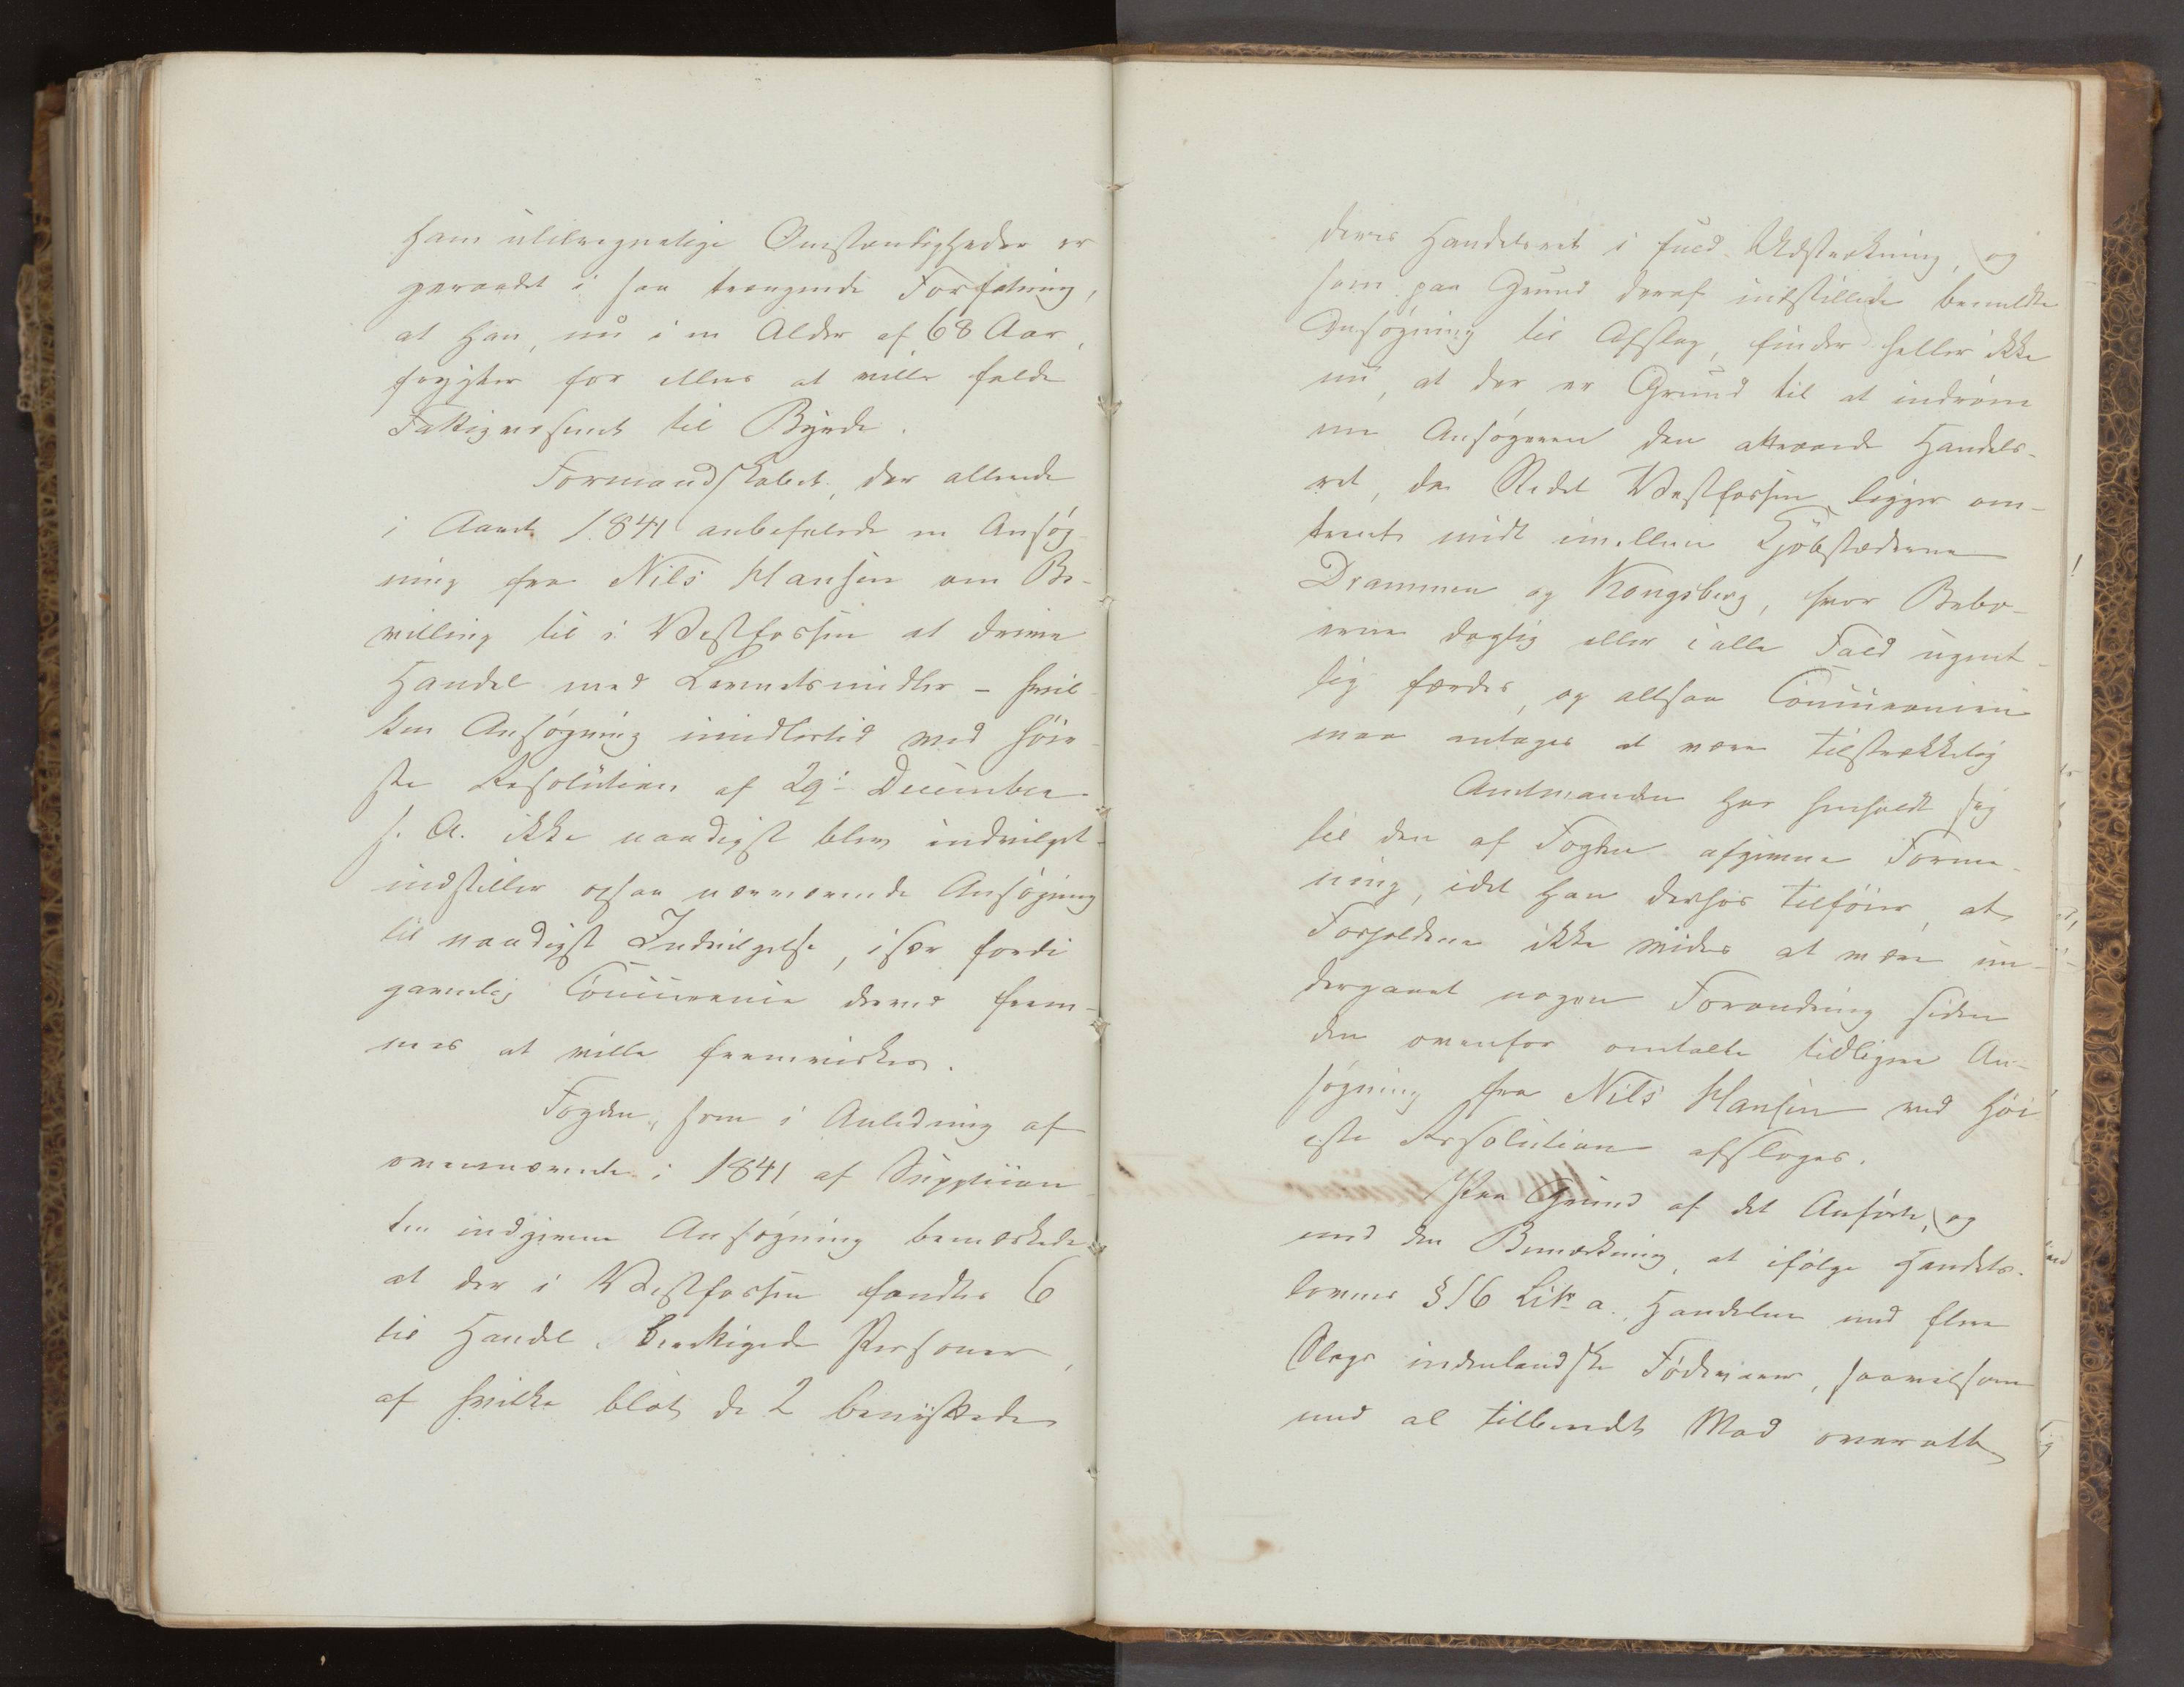 ham utilregnelige Omstændigheder er
geraadet i saa trængende Forfatning,
at han, nu i en Alder af 68 Aar,
frygter for ellers at ville falde
Fattigvæsenet til Byrde.
Formandskabet, der allerede
i Aaret 1841 anbefalede en Ansøg-
ning fra Nils Hansen om Be-
villing til i Vestfossen at drive
Handel med Levnetsmidler – hvil-
ken Ansøgning imidlertid ved høie-
ste Resolution af 29de December
s. A. ikke naadigst blev indvilget –
indstiller ogsaa nærværende Ansøgning
til naadigst Indvilgelse, især fordi
gavnlig Concurrence derved frem-
mes at ville fremvirkes.
Fogden, som i Anledning af
ovennævnte i 1841 af Supplican-
ten indgivne Ansøgning bemærkede
at der i Vestfossen fandtes 6
til Handel berettigede Personer,
af hvilke blot de 2 benyttede
deres Handelsret i fuld Udstrækning, og
som paa Grund deraf indstillede bemeldte
Ansøgning til Afslag, finder heller ikke
nu, at der er Grund til at indrøm-
me Ansøgeren den attraaede Handels-
ret, da Stedet Vestfossen ligger om-
trent midt imellem Kjøbstæderne
Drammen og Kongsberg, hvor Bebo-
erne daglig eller i alle Fald ugent-
lig færdes, og altsaa Concurrencen
maa antages at være tilstrækkelig
Amtmanden har henholdt sig
til den af Fogden afgivne Forme-
ning, idet han derhos tilføier, at
Forholdene ikke vides at være un-
dergaaet nogen Forandring siden
den ovenfor omtalte tidligere An-
søgning fra Nils Hansen ved høi-
este Resolution afsloges.
Paa Grund af det Anførte, og
med den Bemærkning, at ifølge Handels-
lovens § 16 Litr a. Handelen med flere
Slags indenlandske Fødevarer, saavelsom
med al tillavet Mad overalt